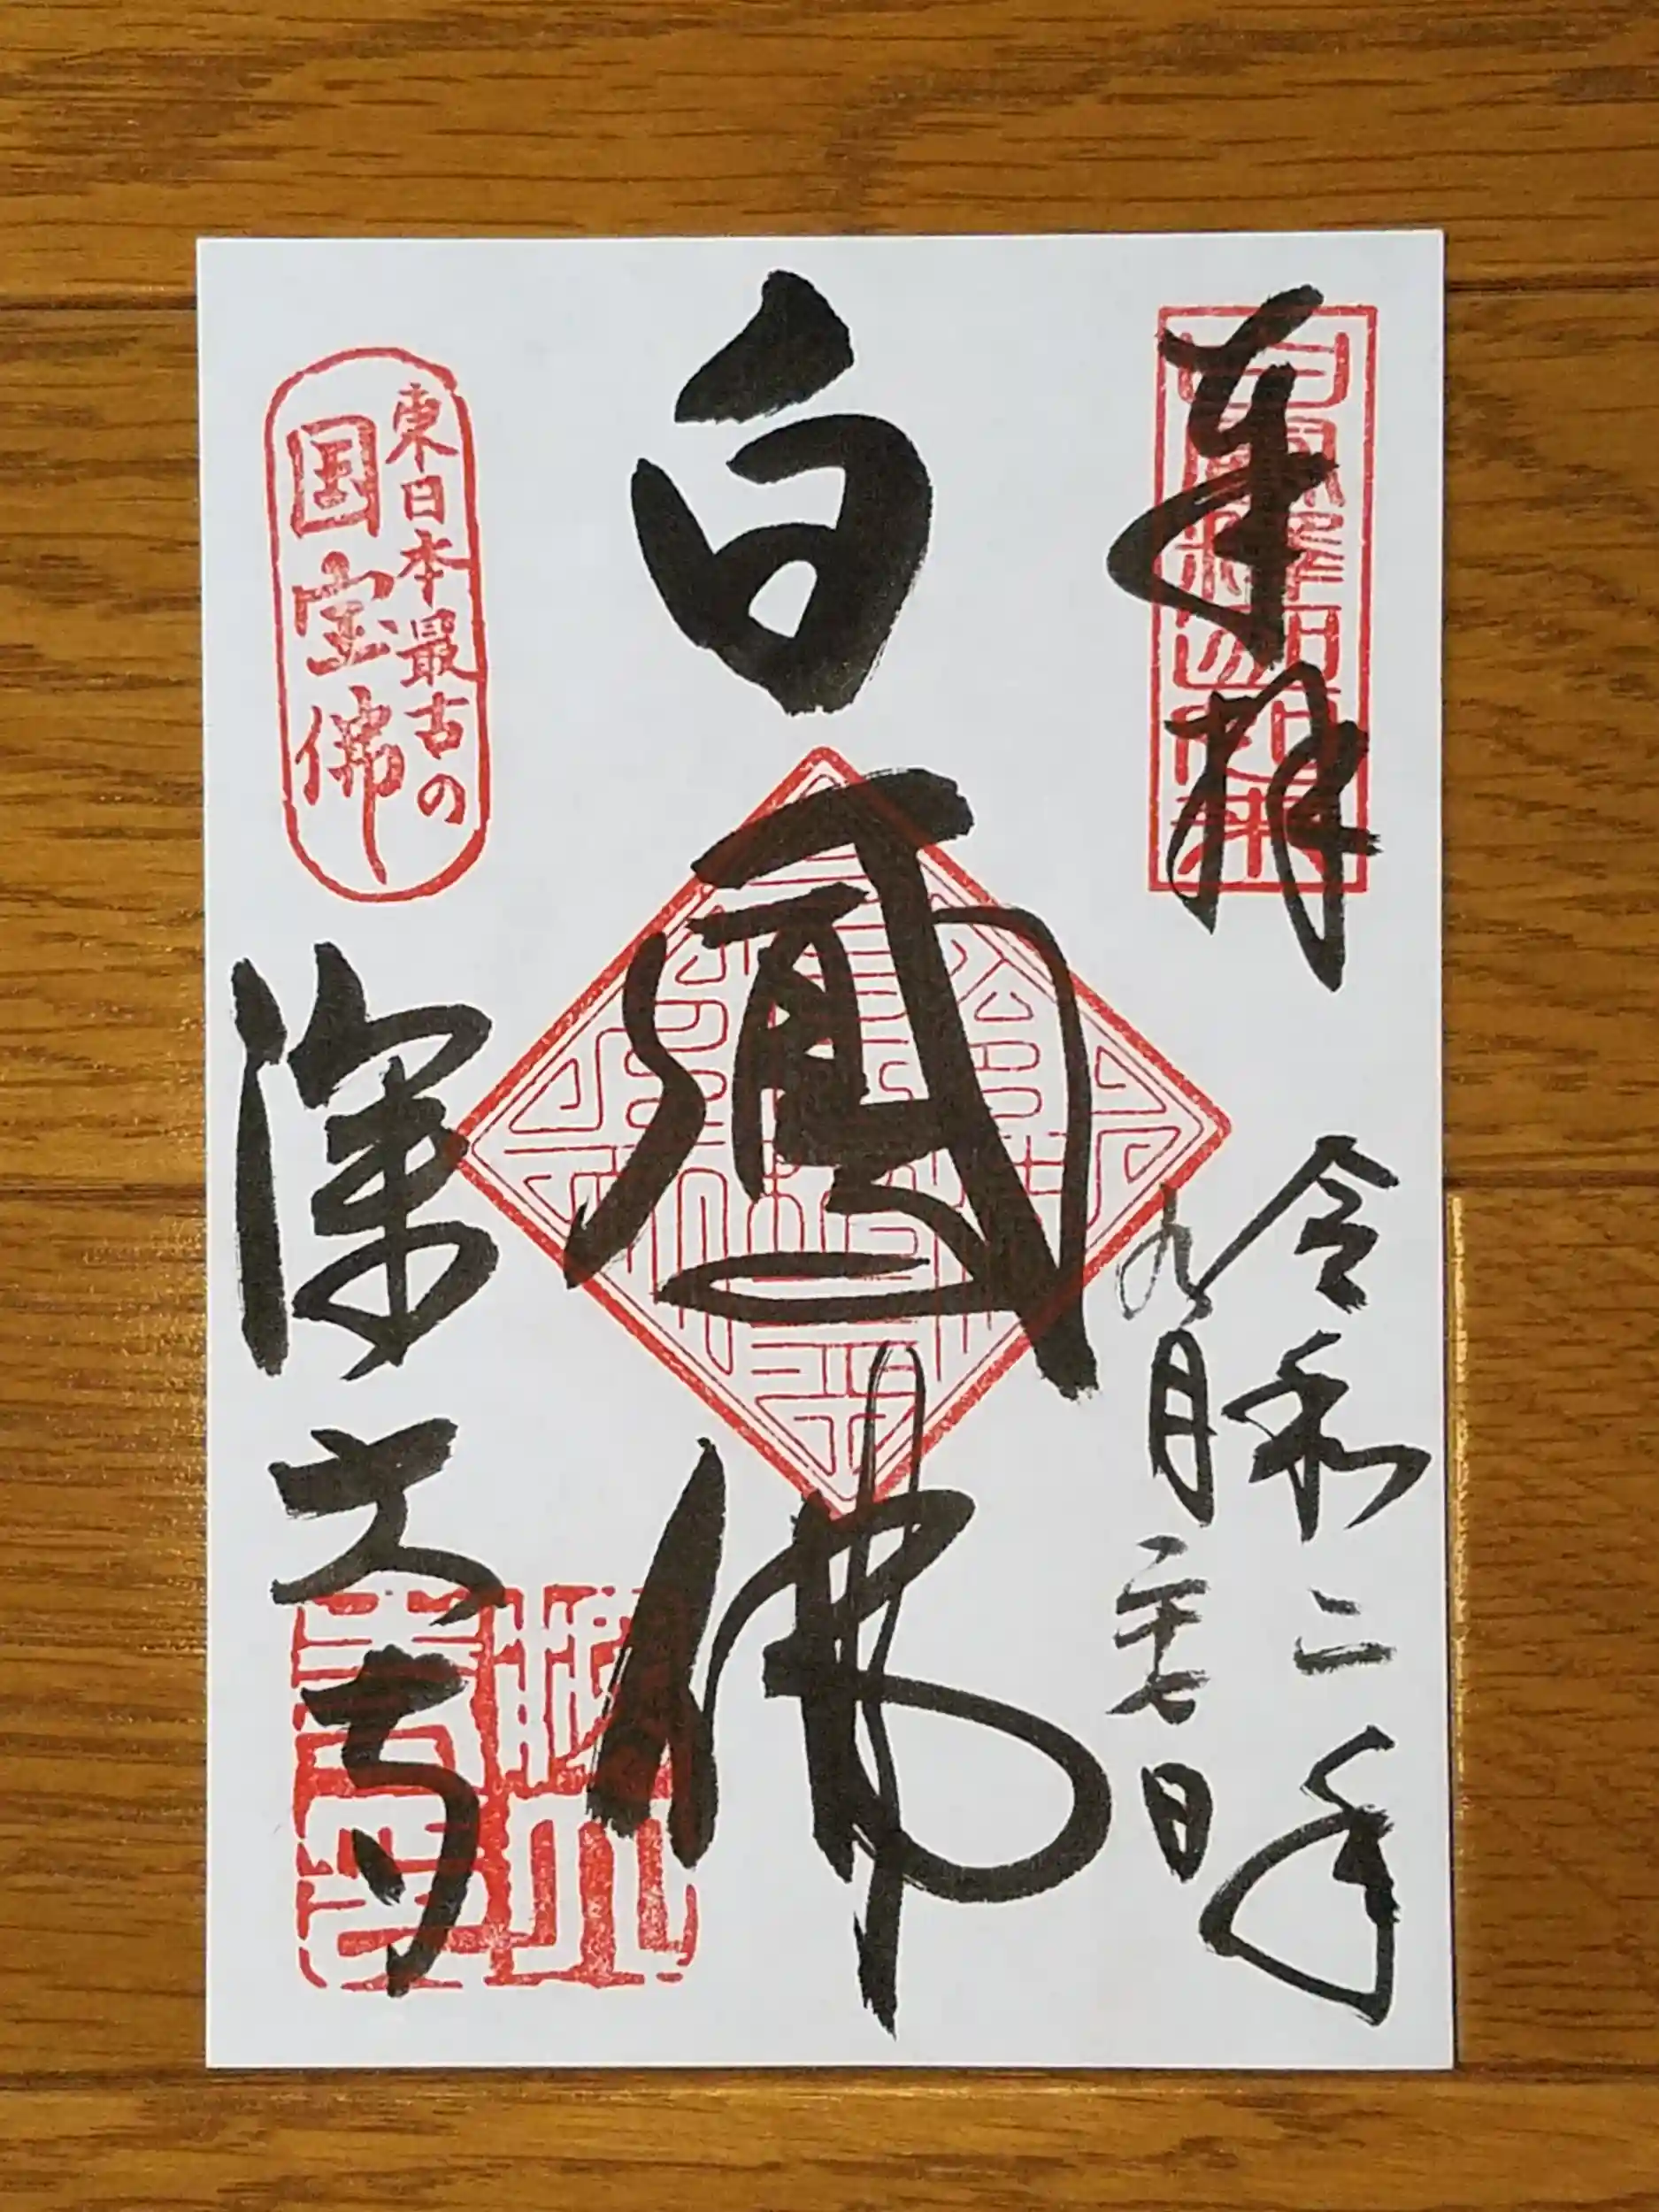 奉拝
令和二年
九月二十七日
白鳳佛
東日本最古の
国宝佛
深大寺